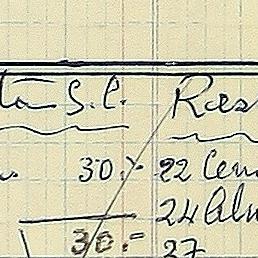 ta S.C. Res
30.- 22 Cena
24 Alm
30.- 27